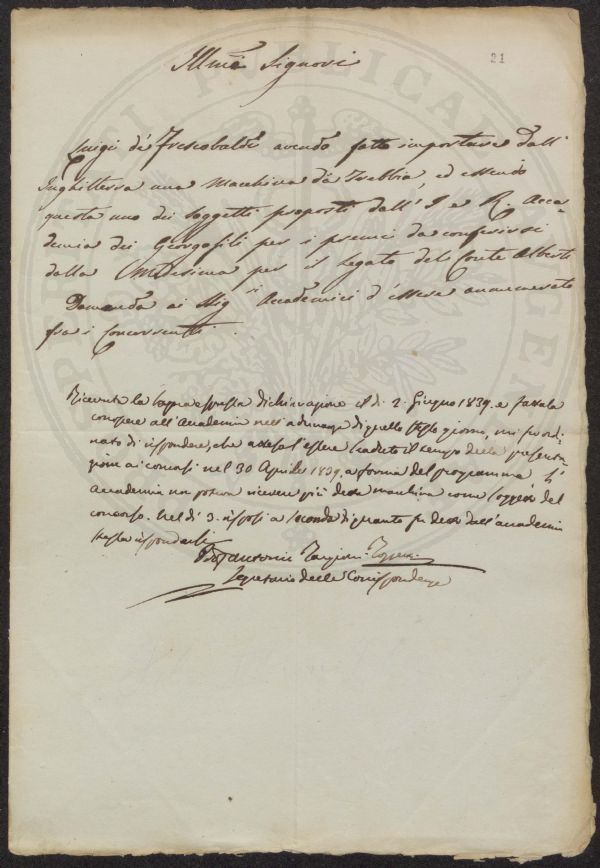 21
Illmi Signori
Luigi de' Frescobaldi avendo fatto importare dall'
Inghilterra una Macchina da Trebbia, ed essendo
questa uno dei Soggetti proposti dall' I. e R. Acca-
demia dei Georgofili per i premi da conferirsi
dalla Medesima per il Legato del Conte Alberti
Domanda ai Sigri Accademici d'essere annoverato
fra i Concorrenti.
Ricevuta la sopraespressa dichiarazione il dì 2. Giugno 1839. e fattala
conoscere all'Accademia nell'adunanza di quello stesso giorno, mi fu ordi-
nato di rispondere, che attesa l'essere scaduto il tempo della presenta-
zione ai concorsi nel 30 Aprile 1839. a forma del programma l'
Accademia non poteva ricevere più detta macchina come soggetto del
concorso. Nel dì 3. risposi a seconda di quanto fu detto dall'accademia
Antonio Targioni-Tozzetti
Segretario delle Corrispondenze
SPERTI PUBLICAE